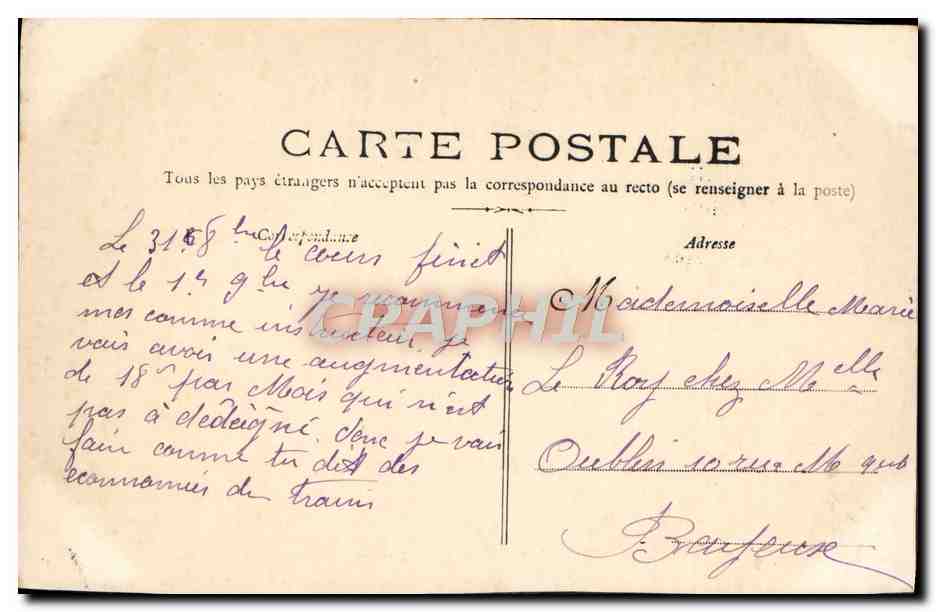 CARTE POSTALE
Tous les pays étrangers n'acceptent pas la correspondance au recto (se renseigner à la poste)
Correspondance
Le 31 8bre le cours finit
et le 1r 9bre je recommence
mes comme instructeur je
vais avoir une augmentation
de 18 par Mois qui n'est
pas à dédeigné. donc je vais
fair comme tu dit des
économies de
CRAPHIL
Adresse
Mademoiselle Marie
Le Roy chez Melle
Oublin 10 rue